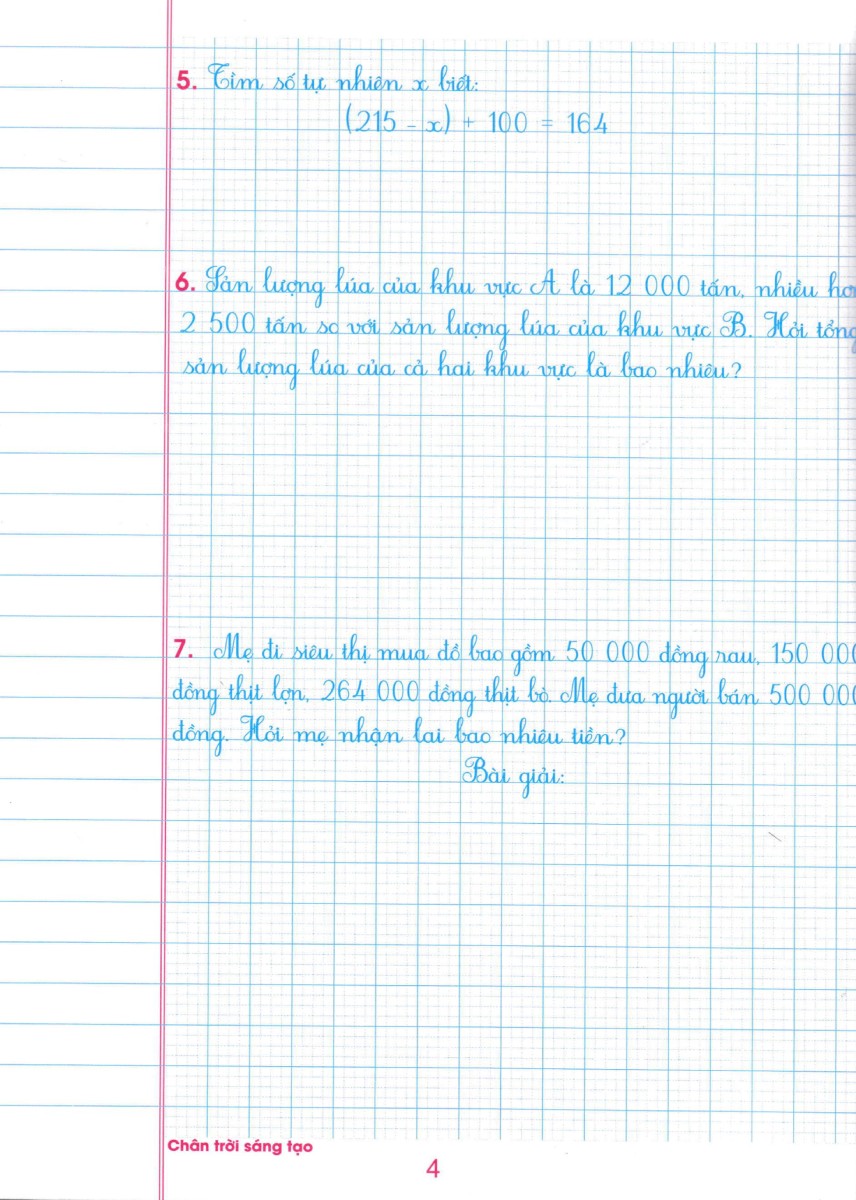 5. Tìm số tự nhiên x biết:
(215 - x) + 100 = 164
6. Sản lượng lúa của khu vực A là 12 000 tấn, nhiều hơ
2 500 tấn so với sản lượng lúa của khu vực B. Hỏi tổng
sản lượng lúa của cả hai khu vực là bao nhiêu?
7. Mẹ đi siêu thị mua đồ bao gồm 50 000 đồng rau, 150 000
đồng thịt lợn, 264 000 đồng thịt bò. Mẹ đưa người bán 500 000
đồng. Hỏi mẹ nhận lại bao nhiêu tiền?
Bài giải:
Chân trời sáng tạo
4